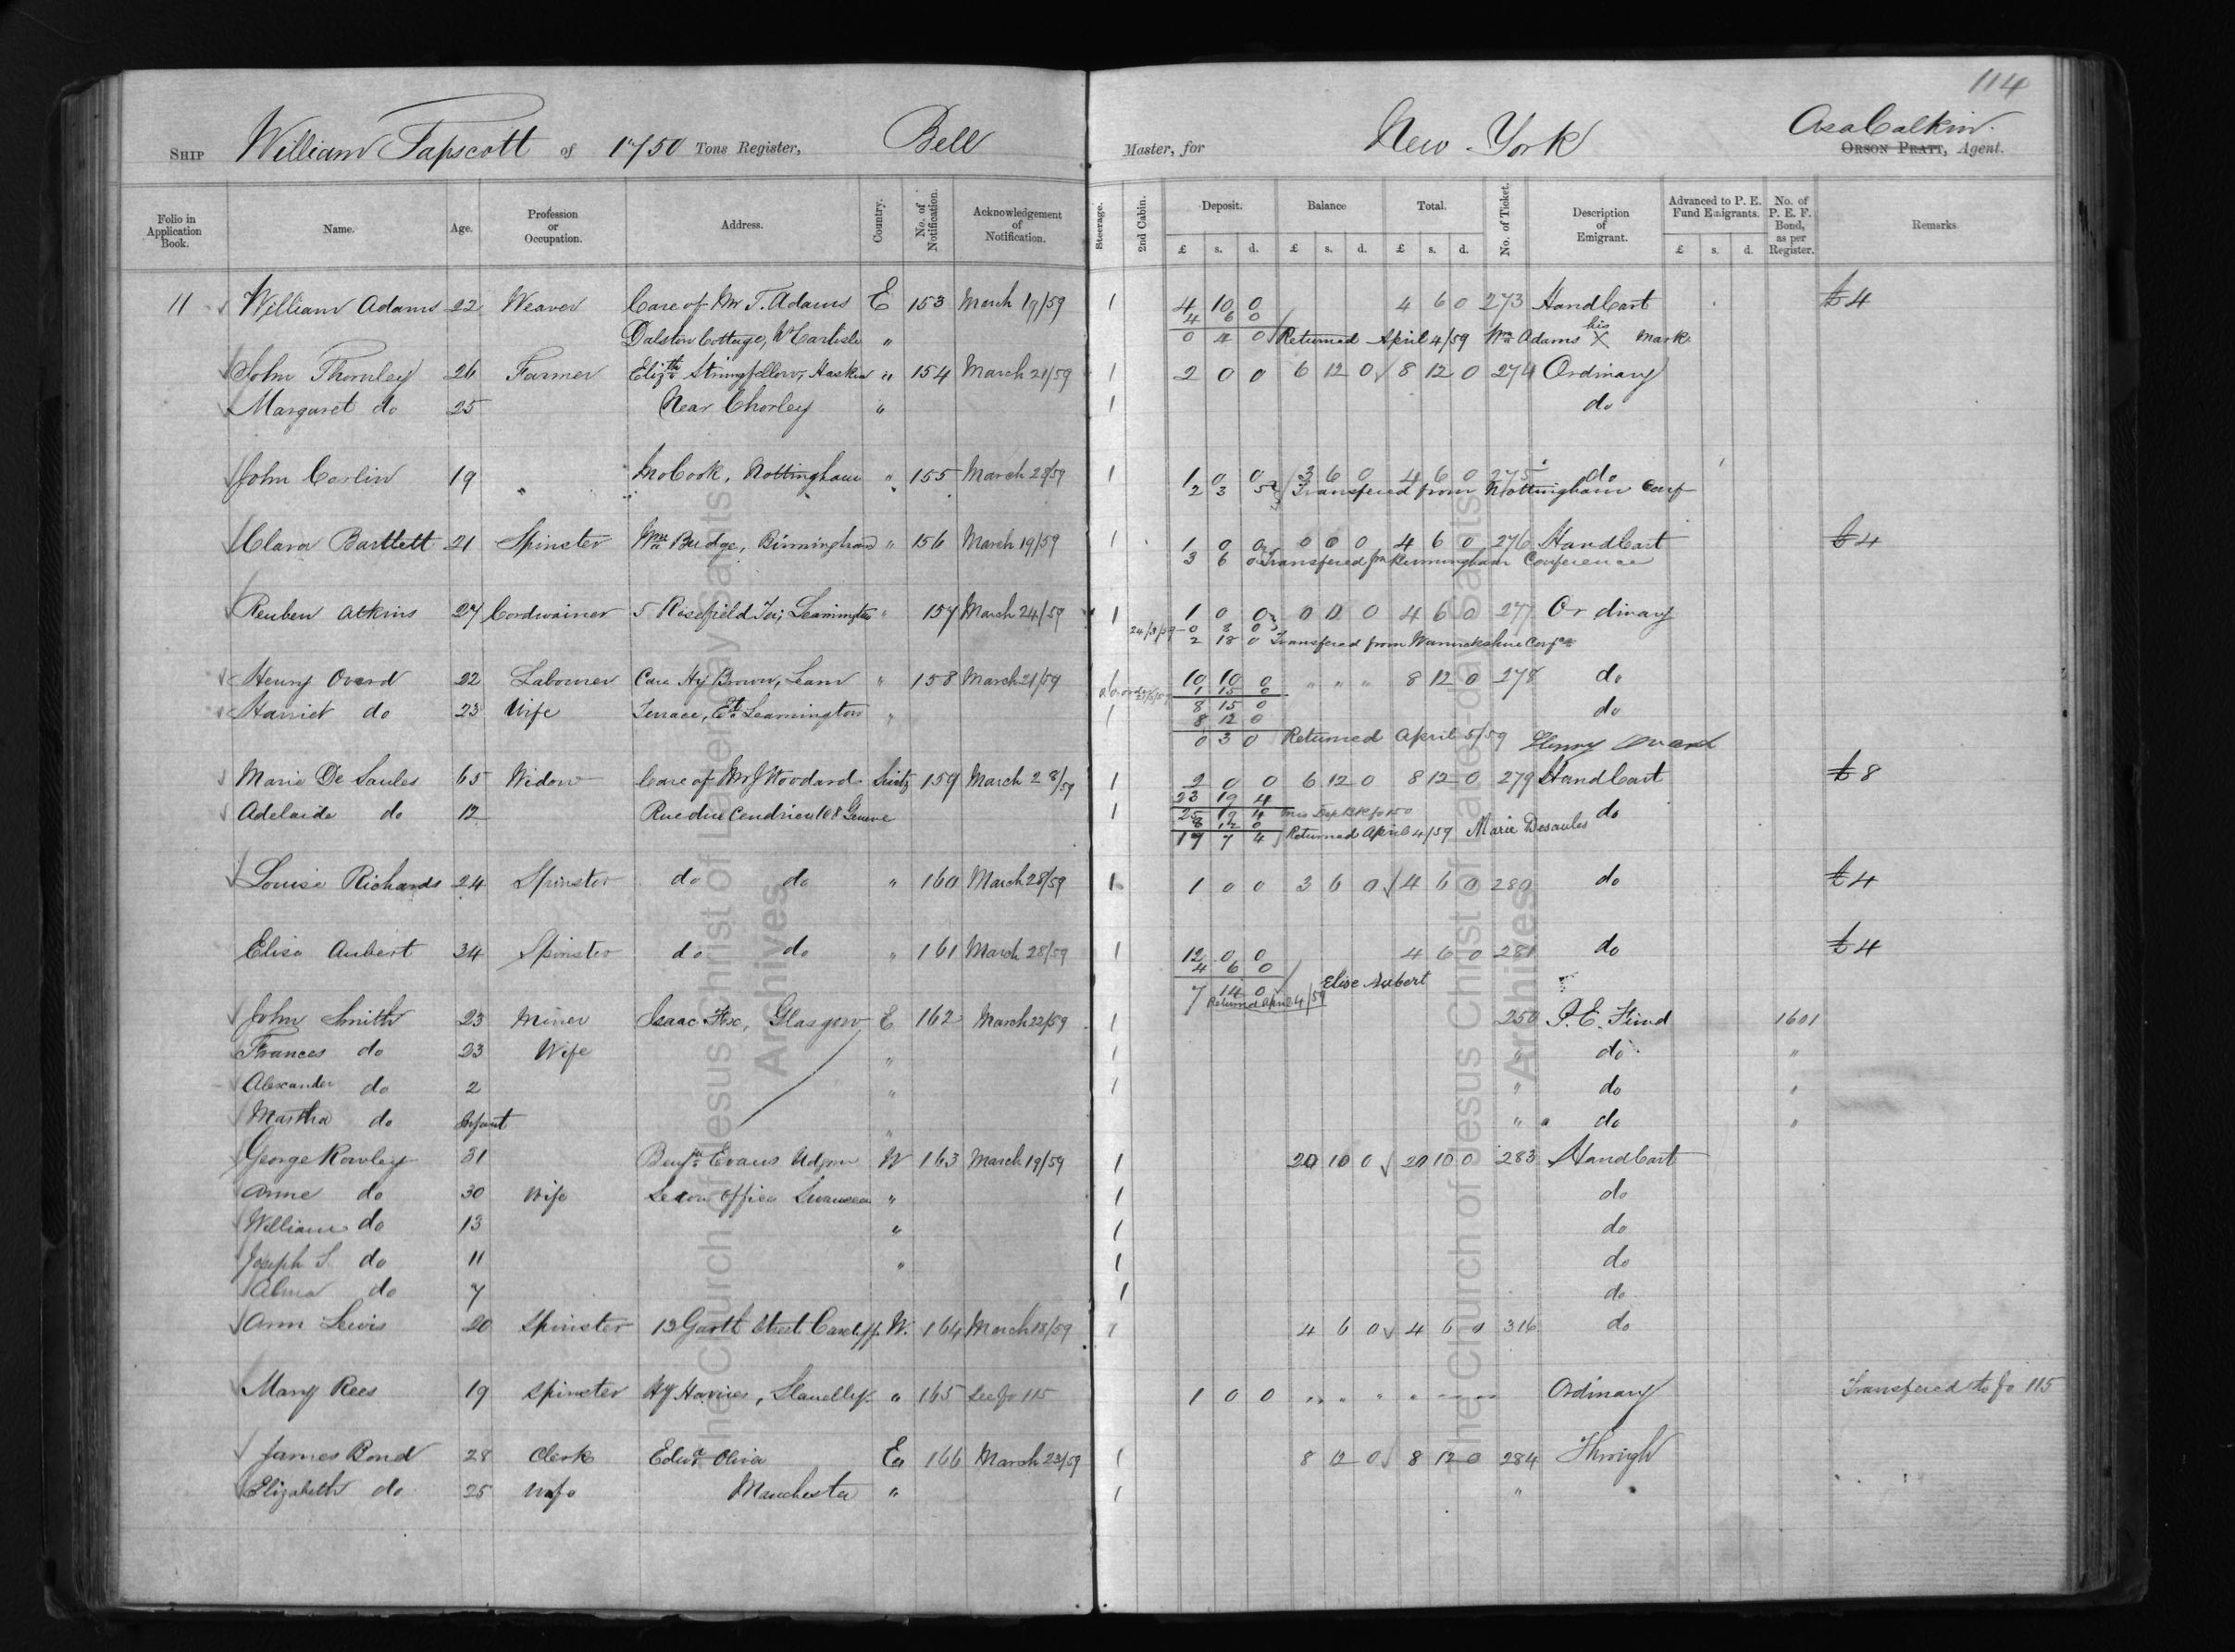 114
Ship William Tapscott of 1750 Tons Register, Bell Master, for New York Asa Calkin.
Orson Pratt, Agent.
Folio in Application Book. Name. Age. Profession or Occupation. Address. Country. No. of Notification. Acknowledgement of Notification. Steerage. 2nd Cabin. Deposit. Balance Total. No. of Ticket. Description of Emigrant. Advanced to P. E. Fund Emigrants. No. of P. E. F. Bond, as per Register. Remarks
£ s. d. £ s. d. £ s. d. £ s. d.
11 William Adams 22 Weaver Care of Mr T. Adams E 153 March 19/59 1 4 10 0 4 6 0 273 HandCart £4
4 6 0
Dalston Cottage, Nr Carlisle " 0 4 0 Returned April 4/59 Wm Adams his X mark
John Thornley 26 Farmer Elizth Stringfellow, Haskin " 154 March 21/59 1 2 0 0 6 12 0 8 12 0 274 Ordinary
Margaret do 25 Near Chorley " 1 do
John Carlin 19 Jno Cook, Nottingham " 155 March 29/59 1 1 0 0 3 6 0 4 6 0 275 do
2 3 Transfered from Nottingham Conf
Clara Bartlett 21 Spinster Wm Budge, Birmingham " 156 March 19/59 1 1 0 0 0 0 0 4 6 0 276 HandCart £4
3 6 0 Transfered fm Birmingham Conference
Reuben Atkins 27 Cordwainer 5 Rosefield Ter; Leamington " 157 March 24/59 1 1 0 0 0 0 0 4 6 0 277 Ordinary
24/3/59 0 8 0
2 18 0 Transfered from Warwickshire Confce
Henry Overd 22 Labourer Care Hy Brown, Leam " 158 March 21/59 1 10 10 0 " " " 8 12 0 278 do
1 15 0
Harriet do 23 Wife Terrace, Et Leamington " 1 8 15 0 do
8 12 0
0 3 0 Returned April 5/59 Henry Overd
Marie De Saules 65 Widow Care of Mr J Woodard Switz 159 March 28/59 1 2 0 0 6 12 0 8 12 0 279 HandCart £8
23 19 4
Adelaide do 12 Rue du Cendrier 108 Geneve 1 25 19 4 do
8 12 0
17 7 4 Returned April 4/59 Marie Desaules
Louise Richards 24 Spinster do do " 160 March 28/59 1 1 0 0 3 6 0 4 6 0 280 do £4
Elise Aubert 34 Spinster do do " 161 March 28/59 1 12 0 0 4 6 0 281 do £4
4 6 0
7 14 0 Elise Aubert
Returned April 4/59
John Smith 23 Miner Isaac Fox, Glasgow E 162 March 22/59 1 250 P. E. Fund 1601
Frances do 23 Wife " 1 " do "
Alexander do 2 " 1 " do "
Martha do Infant " " do "
George Rowley 31 Benjn Evans Udgrn W 163 March 19/59 1 20 10 0 20 10 0 283 HandCart
Anne do 30 Wife Seion Office Swansea " 1 do
William do 13 " 1 do
Joseph S. do 11 " 1 do
Alma do 7 1 do
Ann Lewis 20 Spinster 13 Garth Street Cardiff. W. 164 March 18/59 1 4 6 0 4 6 0 316 do
Mary Rees 19 Spinster Hy Harries, Llanelly. " 165 See fo 115 1 0 0 Ordinary Transfered to fo 115
James Bond 28 Clerk Edwd Oliver En 166 March 23/59 1 8 12 0 8 12 0 284 Through
Elizabeth do 25 Wife Manchester " 1 "
The Church of Jesus Christ of Latter-day Saints
Archives
The Church of Jesus Christ of Latter-day Saints
Archives